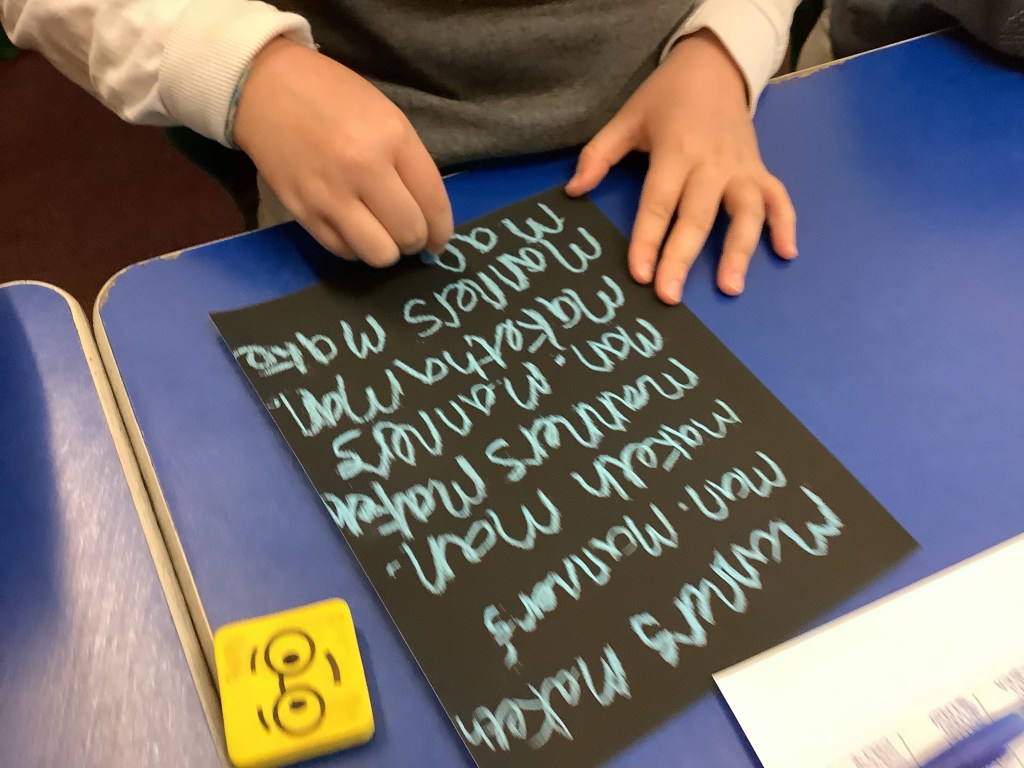 Manners maketh
man. Manners
maketh man.
manners maketh
man. Manners
maketh man.
Manners make
man